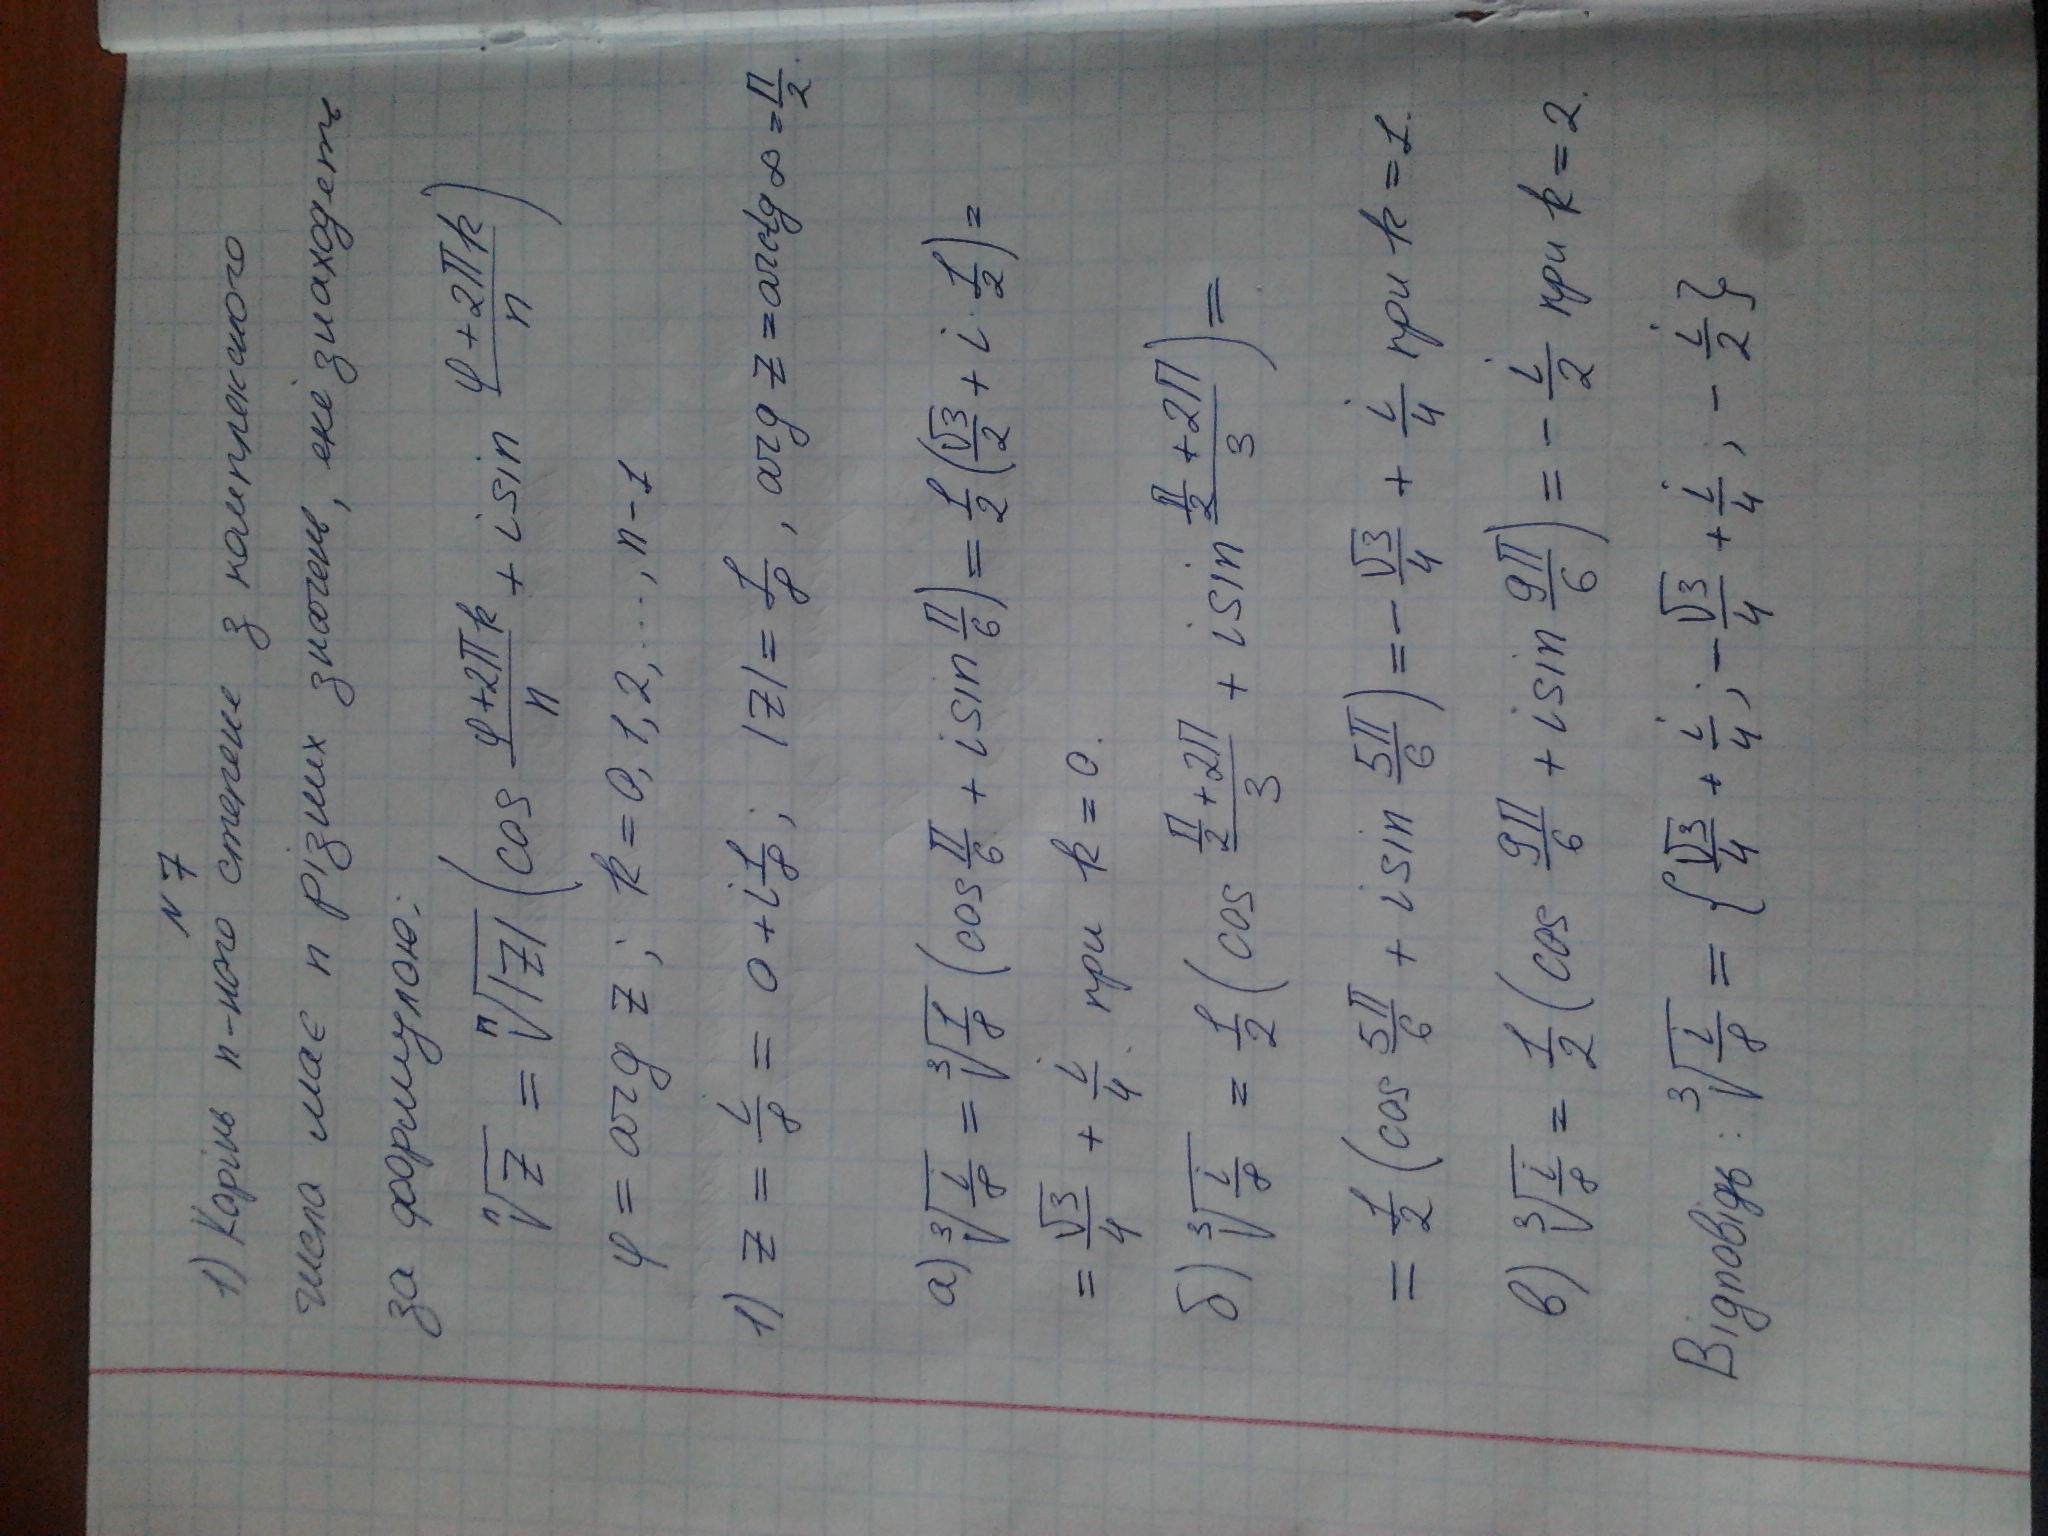 N 7
1) Корінь n-ного степеня з комплексного
числа має n різних значень, які знаходять
за формулою:
ⁿ√z = ⁿ√|z| (cos (φ+2πk)/n + i sin (φ+2πk)/n)
φ = arg z; k = 0, 1, 2, ..., n-1
1) z = i/8 = 0 + i 1/8; |z| = 1/8, arg z = arctg ∞ = π/2.
а) ³√(i/8) = ³√(1/8) (cos π/6 + i sin π/6) = 1/2 (√3/2 + i · 1/2) =
= √3/4 + i/4. при k = 0.
б) ³√(i/8) = 1/2 (cos (π/2 + 2π)/3 + i sin (π/2 + 2π)/3) =
= 1/2 (cos 5π/6 + i sin 5π/6) = - √3/4 + i/4 при k = 1.
в) ³√(i/8) = 1/2 (cos 9π/6 + i sin 9π/6) = - i/2 при k = 2.
Відповідь: ³√(i/8) = {√3/4 + i/4; - √3/4 + i/4; - i/2}